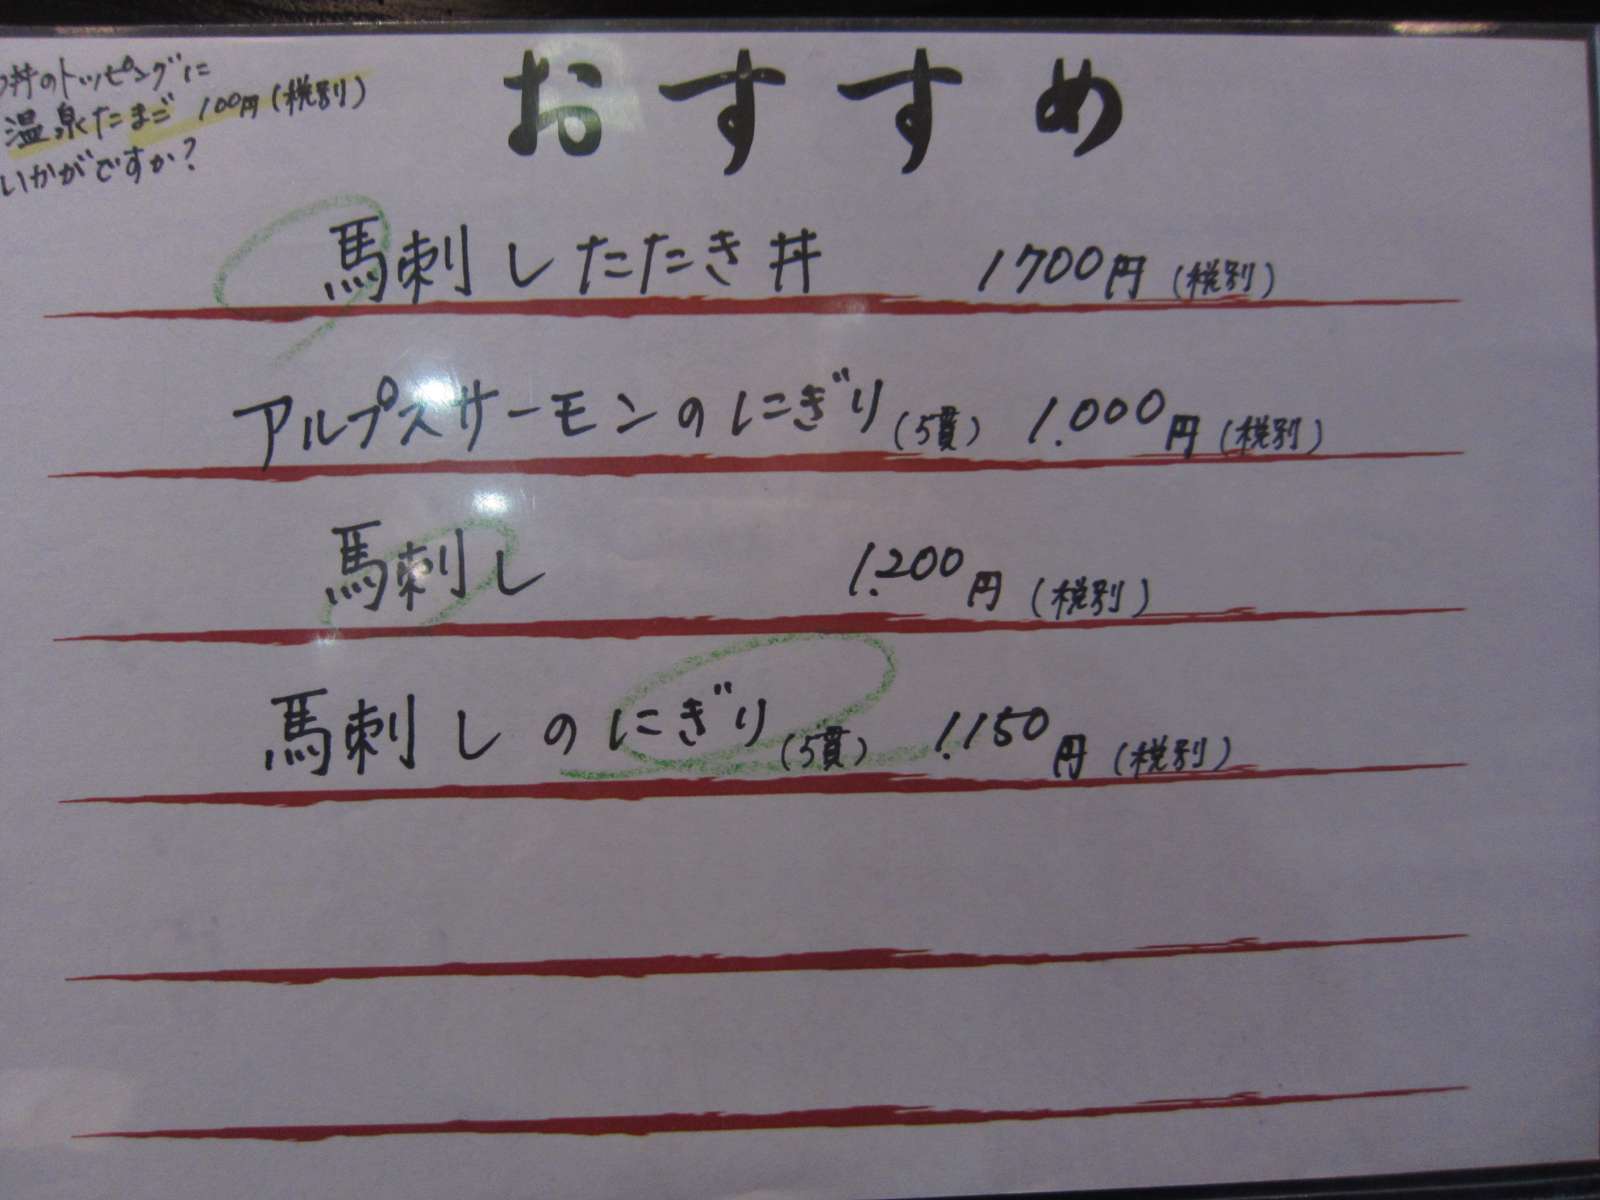 丼のトッピングに
温泉たまご 100円(税別)
いかがですか?
おすすめ
馬刺したたき丼 1700円(税別)
アルプスサーモンのにぎり(5貫) 1.000円(税別)
馬刺し 1.200円(税別)
馬刺しのにぎり(5貫) 1.150円(税別)